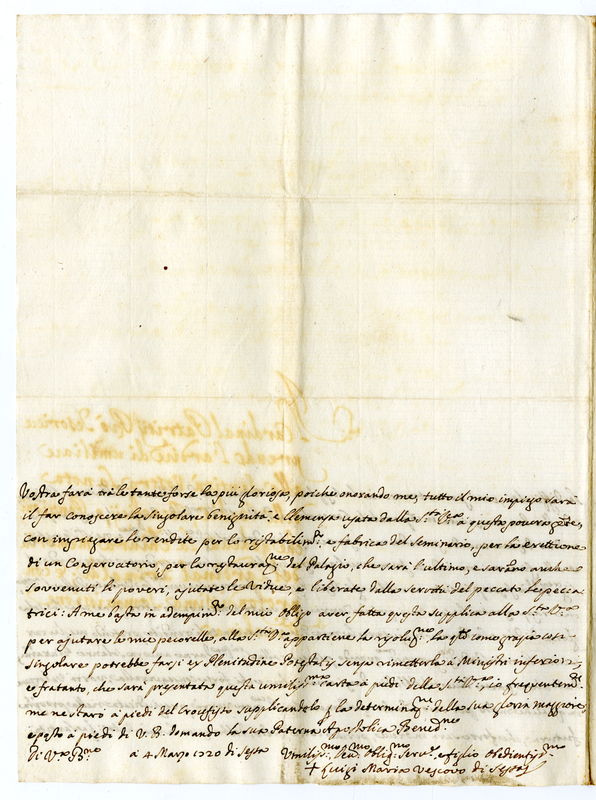 Vostra farà trà le tante forse la più gloriosa, poiche onorando me, tutto il mio impiego sarà
il far conoscere la singolare benignità, e Clemenza usata dalla S.tà V.ra à questa povera gente,
con impiegare le rendite per lo ristabilim.to e fabrica del Seminario, per la erettione
di un Conservatorio, per la restauraz.ne del Palagio, che sarà l'ultimo, e saranno anche
sovvenuti li poveri, ajutate le Vidue, e liberate dalla servitù del peccato le pecca
trici: A me basta in adempim.to del mio obligo aver fatta questa supplica alla S.tà V.ra
per ajutare le mie pecorelle, alla S.tà V.ra appartiene la risoluz.ne, la q.le come grazia così
singolare potrebbe farsi ex Plenitudine Potestatis senza rimetterla à Ministri inferiori,
e frà tanto, che sarà presentata questa umiliss.ma carta à piedi della S.tà V.ra, io frequentem.te
me ne starò à piedi del Crocifisso supplicandolo p la determinaz.ne della sua gloria maggiore,
e posto à piedi di V. B. domando la sua Paterna Apostolica Bened.ne
Di V.ra B.ne à 4 Marzo 1720 di Sessa Umiliss.mo Dev.mo Oblig.mo Serv.re e figlio Obedientiss.mo
+ Luigi Maria Vescovo di Sessa